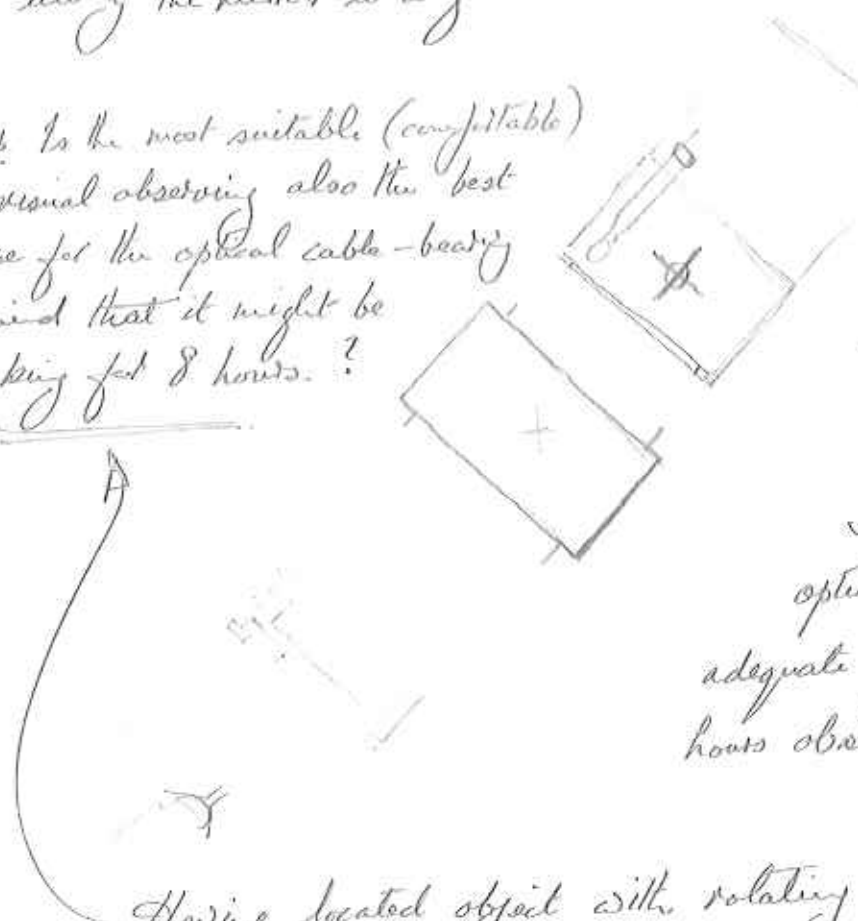 the
? Is the most suitable (comfortable)
visual observing also the best
for the optical cable - bearing
that it might be
king for 8 hours. ?
adequate
hours obse
Having located object with rotating